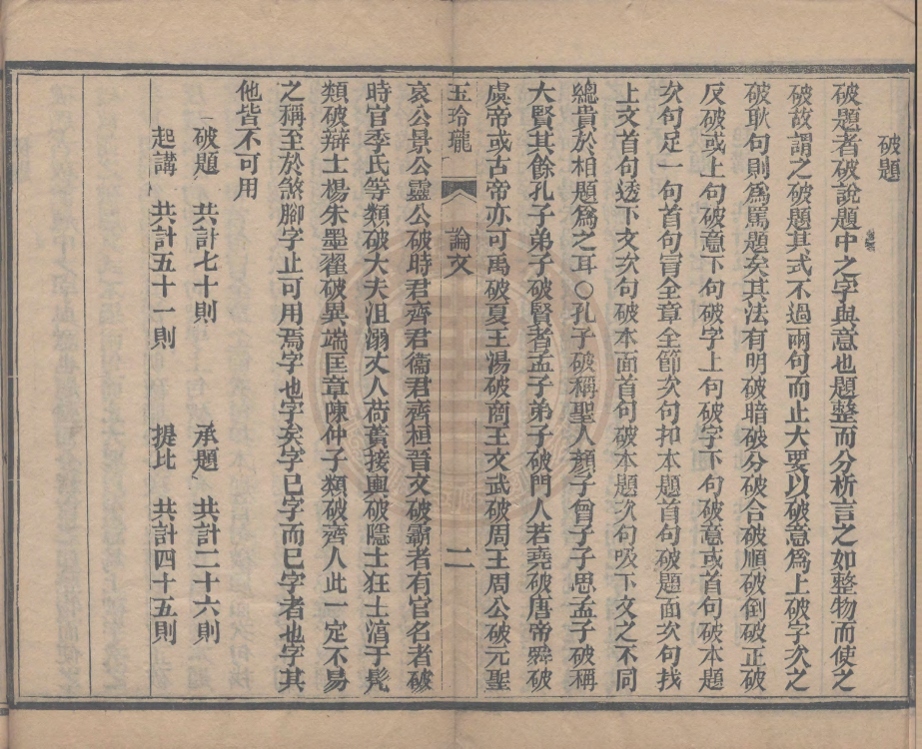 破題
破題者破說題中之字與意也題整而分析言之如整物而使之
破故謂之破題其式不過兩句而止大要以破意爲上破字次之
破耿句則爲罵題矣其法有明破暗破分破合破順破倒破正破
反破或上句破意下句破字上句破字下句破意或首句破本題
次句足一句首句冒全章全節次句扣本題首句破題面次句找
上文首句透下文次句破本面首句破本題次句吸下文之不同
總貴於相題爲之耳○孔子破稱聖人顏子曾子子思孟子破稱
大賢其餘孔子弟子破賢者孟子弟子破門人若堯破唐帝舜破
虞帝或古帝亦可禹破夏王湯破商王文武破周王周公破元聖
玉玲瓏 論文 二
哀公景公靈公破時君齊君衞君齊桓晉文破霸者有官名者破
時官季氏等類破大夫沮溺丈人荷蕢接輿破隱士狂士淳于髠
類破辯士楊朱墨翟破異端匡章陳仲子類破齊人此一定不易
之稱至於煞腳字止可用焉字也字矣字已字而已字者也字其
他皆不可用
一破題 共計七十則 承題 共計二十六則
起講 共計五十一則 提比 共計四十五則